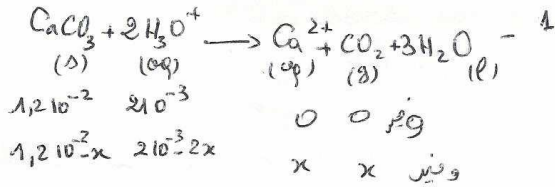 CaCO₃ + 2H₃O⁺ → Ca²⁺ + CO₂ + 3H₂O - 1
(s) (aq) (aq) (g) (l)
1,2 10⁻² 2 10⁻³ 0 0 وفير
1,2 10⁻²-x 2 10⁻³-2x x x وفير